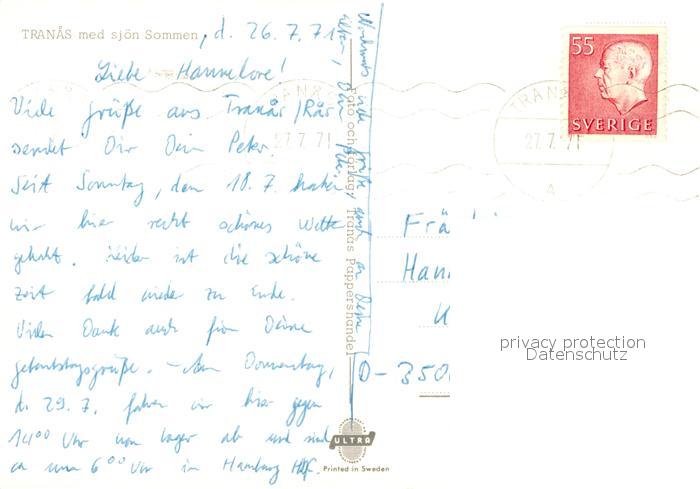 TRANÅS med sjön Sommen, d. 26.7.71
Liebe Hannelore!
Viele Grüße aus Tranås/Rås
sendet Dir Dein Peter.
Seit Sonntag, dem 18.7. haben
wir hier recht schönes Wetter
gehabt. Leider ist die schöne
Zeit bald wieder zu Ende.
Vielen Dank auch für Deine
Geburtstagsgrüße. – Am Donnerstag,
d. 29.7. fahren wir hier gegen
14⁰⁰ Uhr vom Lager ab und sind
ca um 6⁰⁰ Uhr in Hamburg Hbf.
Nochmals viele Grüße auch an Deine
Eltern, Dein Peter
Foto och förlag: Tranås Pappershandel
ULTRA
Printed in Sweden
55
SVERIGE
TRANÅS
27.7.71
A
TRANÅS
27 7 71
Frä
Han
D-350
privacy protection
Datenschutz